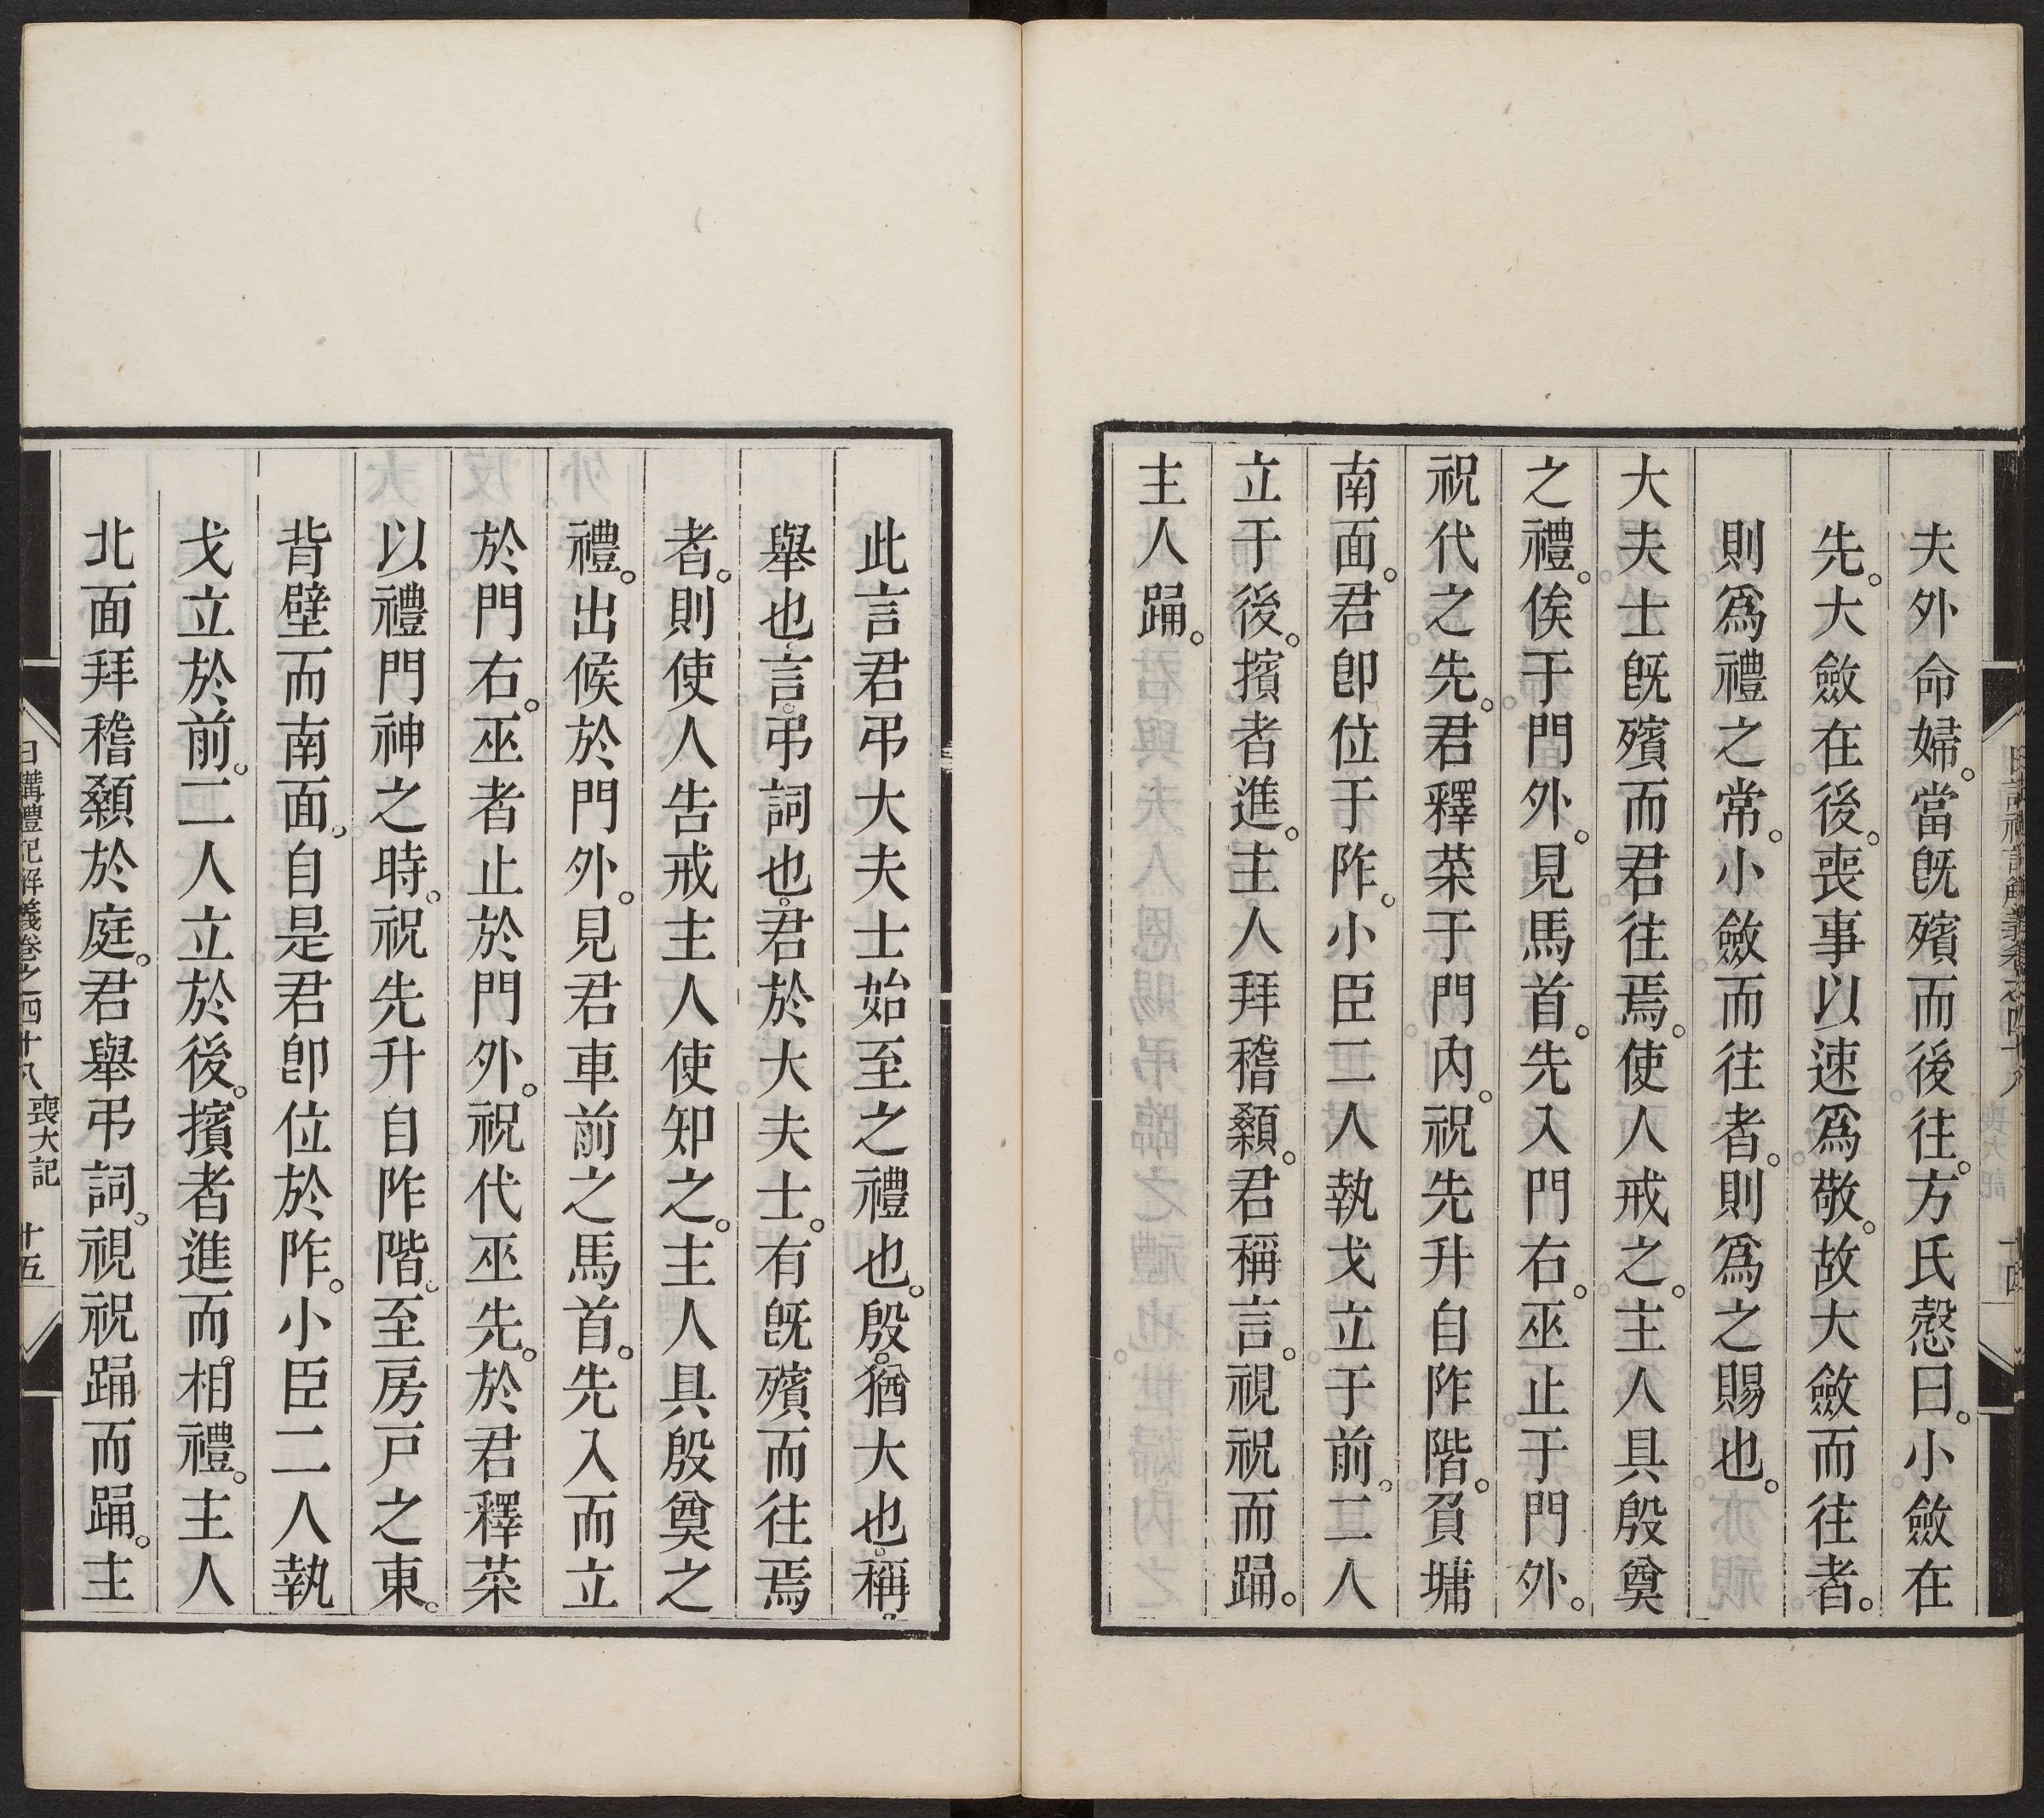 夫外命婦。當旣殯而後往。方氏慤曰。小斂在
先。大斂在後。喪事以速爲敬。故大斂而往者。
則爲禮之常。小斂而往者。則爲之賜也。
大夫士旣殯而君往焉。使人戒之。主人具殷奠
之禮。俟于門外。見馬首。先入門右。巫止于門外。
祝代之先。君釋菜于門內。祝先升自阼階。負墉
南面。君卽位于阼。小臣二人執戈立于前。二人
立于後。擯者進。主人拜稽顙。君稱言。視祝而踊。
主人踊。
此言君弔大夫士始至之禮也。殷。猶大也。稱。
舉也。言。弔詞也。君於大夫士。有旣殯而往焉
者。則使人告戒主人使知之。主人具殷奠之
禮。出候於門外。見君車前之馬首。先入而立
於門右。巫者止於門外。祝代巫先。於君釋菜
以禮門神之時。祝先升自阼階。至房戶之東。
背壁而南面。自是君卽位於阼。小臣二人執
戈立於前。二人立於後。擯者進而。相禮。主人
北面拜稽顙於庭。君舉弔詞。視祝踊而踊。主
日講禮記解義卷之四十八 喪大記 十五